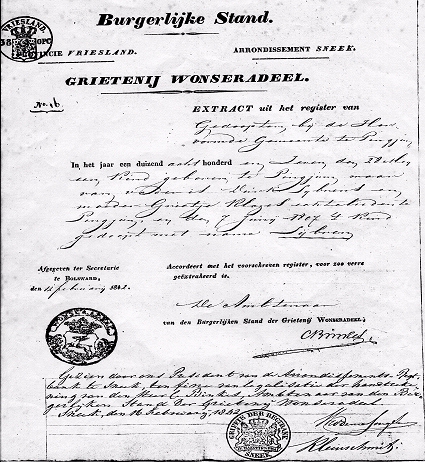 Burgerlijke Stand.
VRIESLAND.
PROVINCIE VRIESLAND. ARRONDISSEMENT SNEEK.
GRIETENIJ WONSERADEEL.
EXTRACT uit het register van
Gedoopten, bij de Her
vormde Gemeente te Pingjum
In het jaar een duizend acht honderd en Zeven den
een Kind geboren te Pingjum waar
van vader is en
moeder Grietje Klazes
Pingjum, en den 7 Junij 1807 't Kind
gedoopt met name
Afgegeven ter Secretarie
te BOLSWARD,
den februarij 1842.
Accordeert met het voorschreven register, voor zoo verre
geëxtraheerd is.
De Ambtenaar
van den Burgerlijken Stand der Grietenij WONSERADEEL,
Gezien door ons President van de Arrondissements Regt
bank te Sneek, ten fine van legalisatie der handteeke
ning van den Heer Ambtenaar van den Bur
gerlijken Stand der Grietenij Wonseradeel
Sneek, den 16 Februarij 1842
GRIFFIE DER REGTBANK
SNEEK